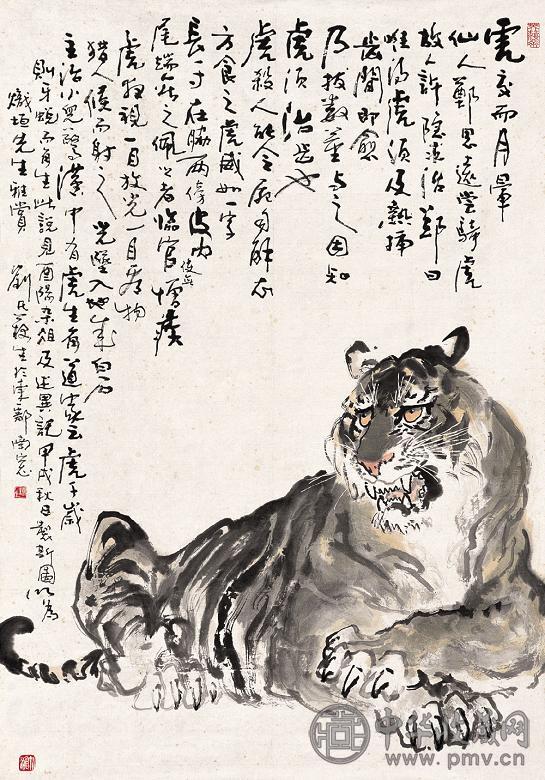 虎交而月暈
仙人鄭思遠嘗騎虎
故人許隱齒治鄭曰
唯得虎須及熱插
齒間即愈
乃拔數莖與之因知
虎須治齒也
虎殺人能令屍自解衣
方食之虎威如一字
長一寸在脇兩傍皮內
尾端亦之佩之者臨官佳無憎疾
虎夜視一目放光一目看物
獵人候而射之光墜入地成白石
主治小兒驚漢中有虎生角道家云虎千歲
則牙蛻而角生此說見酉陽雜俎及述異記甲戌秋日製斯圖以為
熾垣先生雅賞 劉生於東鄰南窗
中华收藏网
www.pmv.cn